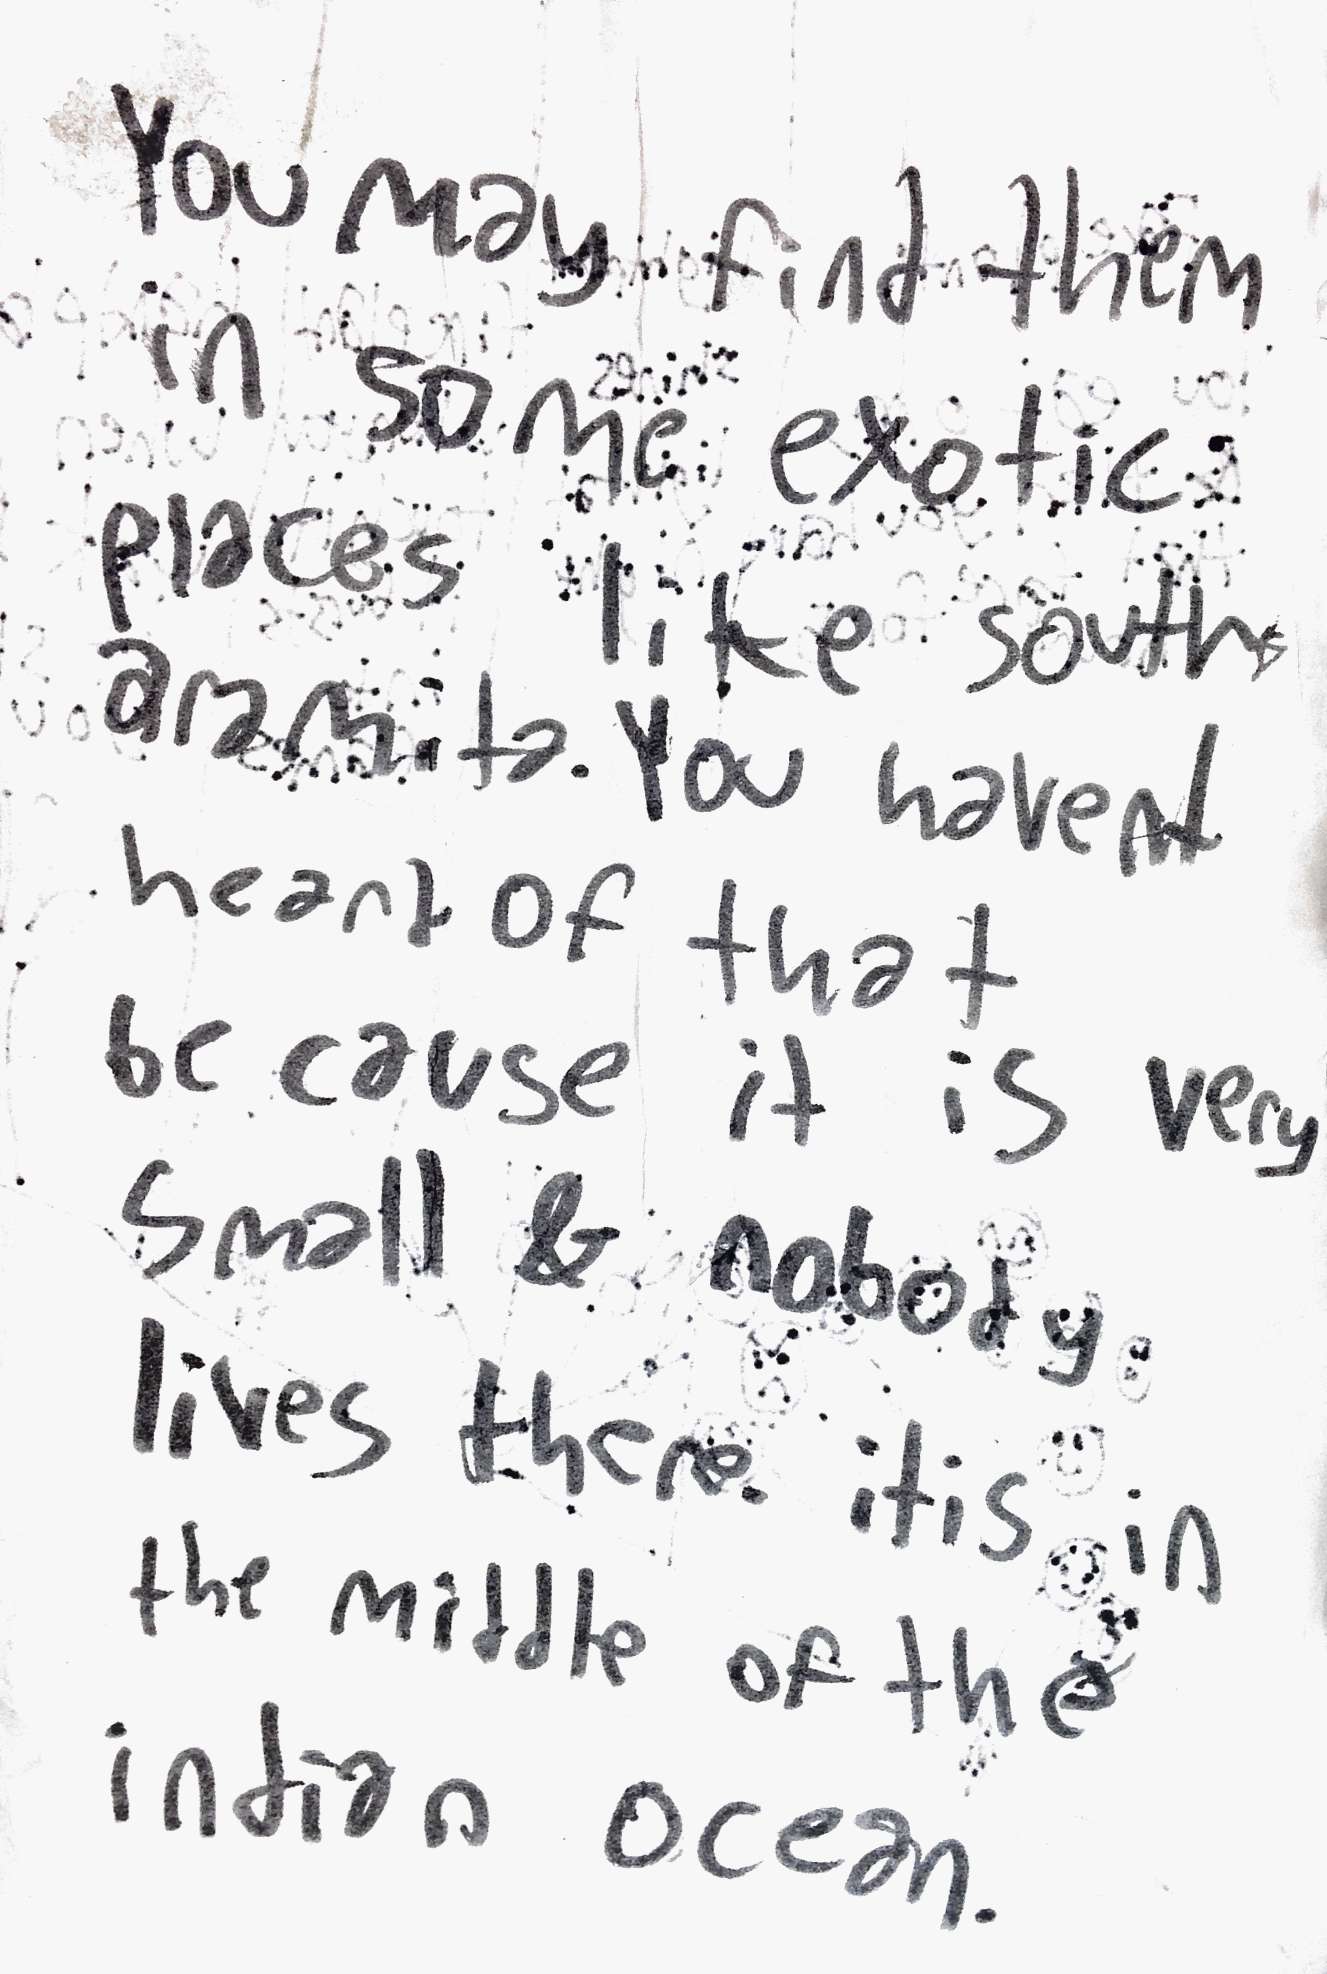 You may find them
in some exotic
places like south
aramita. You havent
heard of that
because it is very
small & nobody
lives there. it is in
the middle of the
indian ocean.